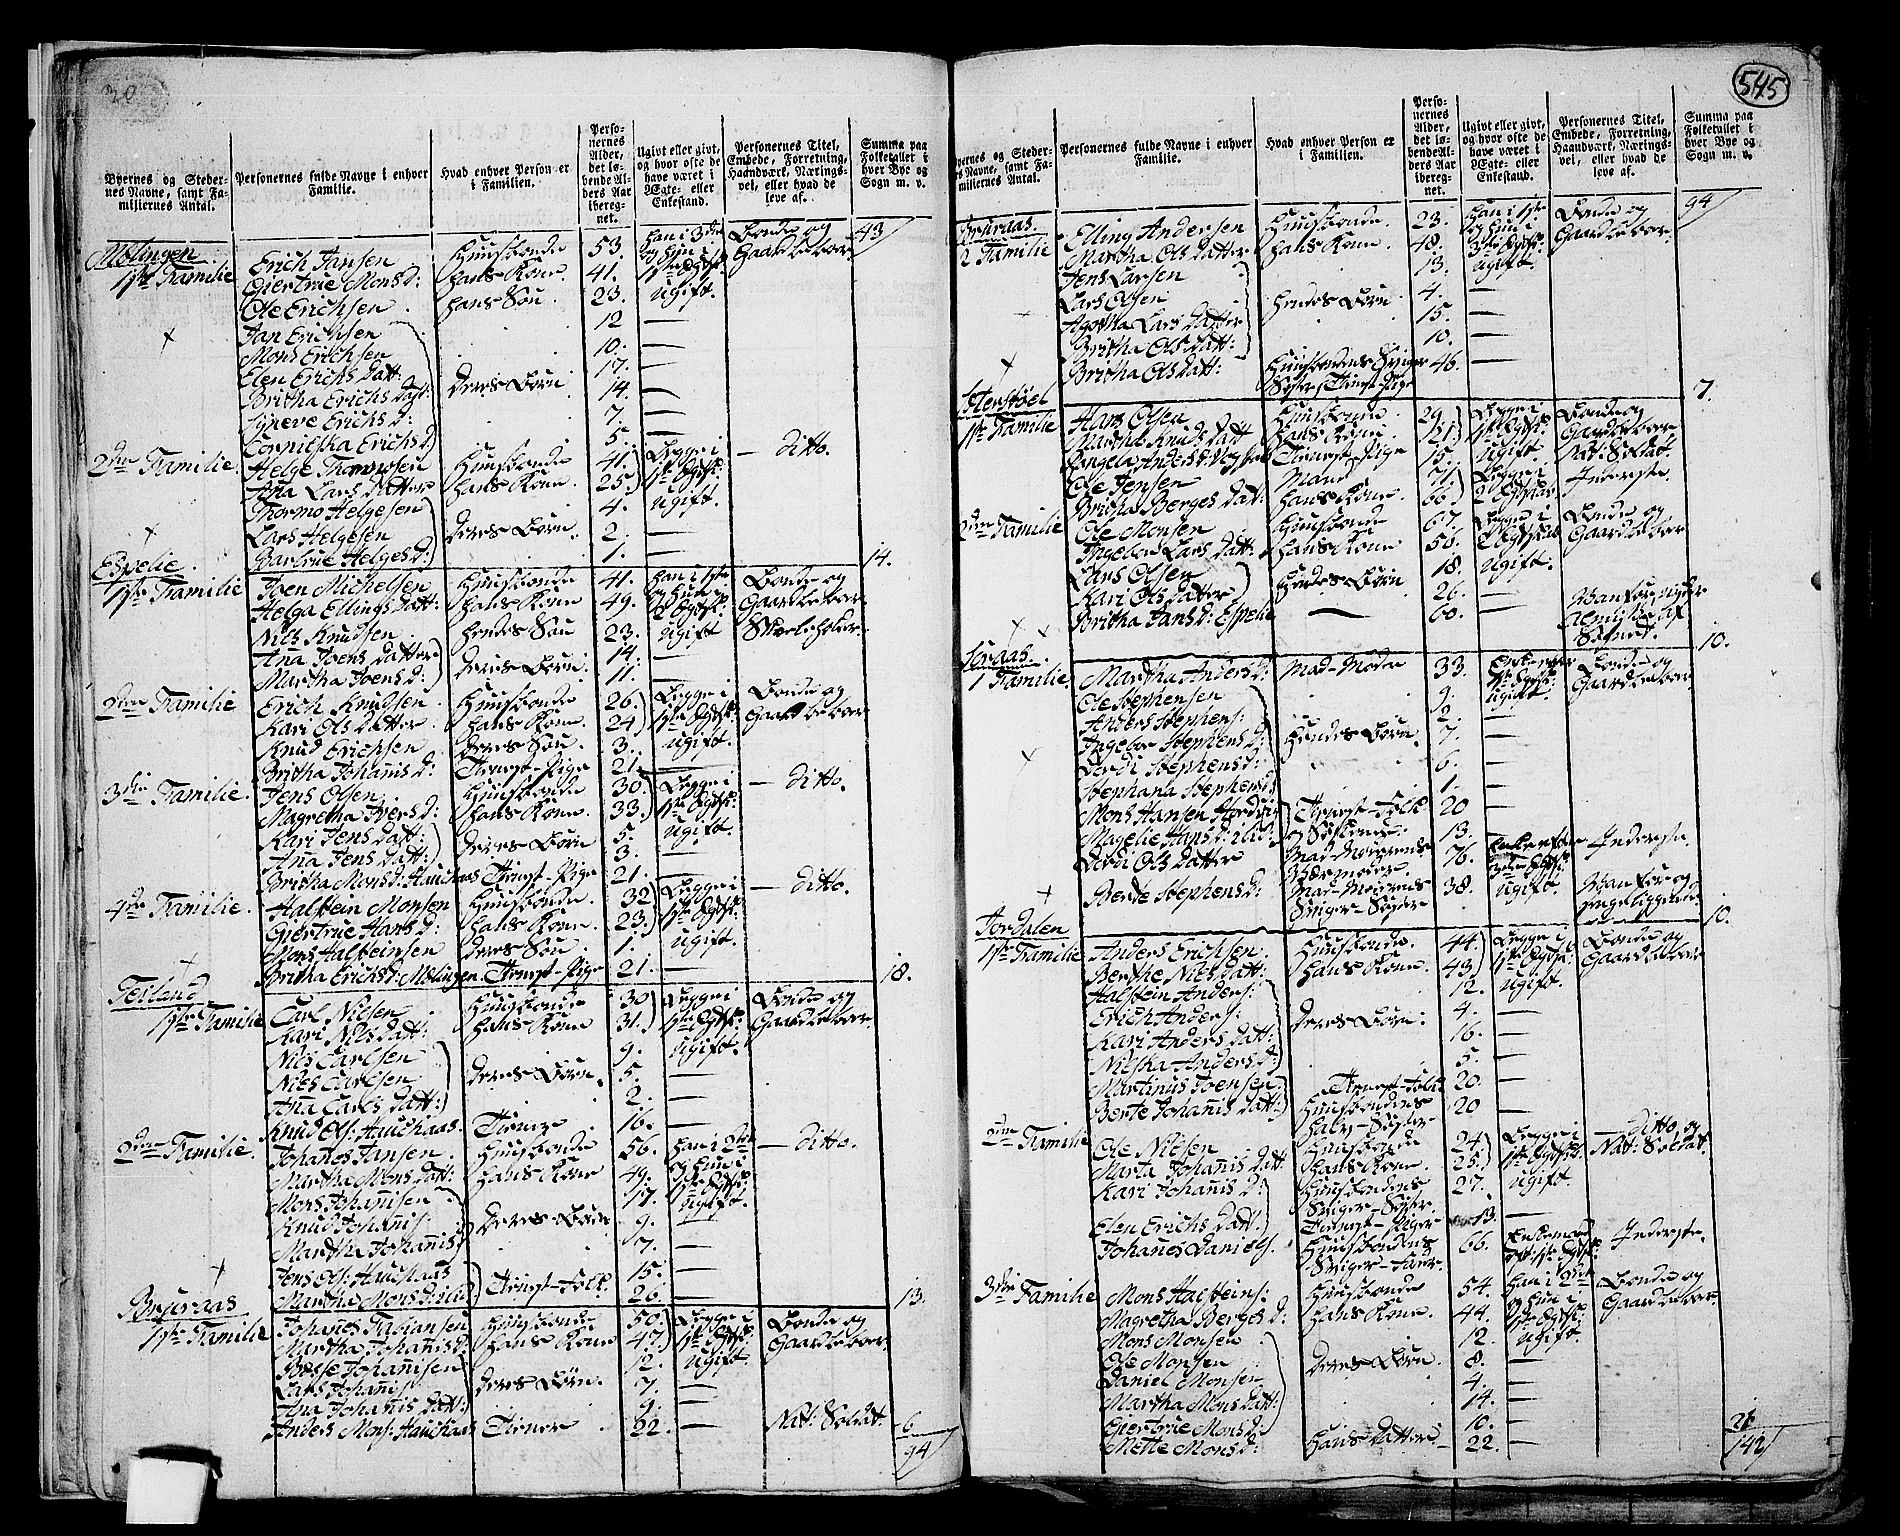 30
Byernes og Steder-
nes Navne, samt Fa-
miliernes Antal.
Personernes fulde Navne i enhver
Familie.
Hvad enhver Person er
i Familien.
Perso-
nernes
Alder,
det lø-
bende Al-
ders Aar
ibereg-
net.
Ugivt eller givt,
og hvor ofte de
have været i
Ægte- eller
Enkestand.
Personernes Titel,
Embede, Forretning,
Haandværk, Nærings-
vei, eller hvad de
leve af.
Summa paa
Folketallet i
hver Bye og
Sogn m. v.
43
Mølingen
1ste Familie Erich Jansen Huusbonde 53. han i 3die Bonde og
Giertrue Mons D: hans Kone 41. og hun i Gaardbeboer
Ole Erichsen hans Søn 23. ugift.
Jan Erichsen 12 —
Mons Erichsen 10. —
Elen Erichs Datt: 17. —
Britha Erichs Datt: deres Børn 14. —
Syneve Erichs D: 7. —
Cornilska Erichs D 5. —
2den Familie Helge Thormosen Huusbonde 41. Begge i — ditto.
Ana Lars Datter hans Kone 25. 1ste Egtsk:
Thormo Helgesen 4. ugift.
Lars Helgesen deres Børn 2. —
Bartrue Helges D: 1. — 14.
Espelie
1ste Familie Joen Michelsen Huusbonde 41. han i 1ste Bonde og
Helga Ellings Datt: hans Kone 49. og hun i Gaardbeboer
Nils Knudsen hendes Søn 23. ugift Skoleholder.
Ana Joens Datter 14. —
Martha Joens D: deres Børn 11. —
2den Familie Erich Knudsen Huusbonde 26. Begge i Bonde og
Kari Ols Datter hans Kone 24 1ste Egtsk: Gaardbeboer
Knud Erichsen deres Søn 3. ugift.
Britha Johanis D: Tienst-Pige 21. —
3die Familie Jens Olsen Huusbonde 30. Begge i — ditto.
Magretha Ivers D: hans Kone 33. 1ste Egtsk:
Kari Jens Datt: 5. ugift.
Ana Jens Datt: deres Børn 3. —
Britha Mons D: Hauchaas Tienst-Pige 21. —
4de Familie Halstein Monsen Huusbonde 32 Begge i — ditto.
Giertrue Hans D: hans Kone 23. 1ste Egtsk:
Mons Halsteinsen deres Søn 1. ugift
Britha Erichs D: Mølingen Tienst-Pige 21. — 18.
Teiland
1ste Familie Carl Nilsen Huusbonde 30 Begge i Bonde og
Kari Nils Datt: hans Kone 31. 1ste Egtsk: Gaardbeboer
Nils Carlsen 9. ugift.
Nils Carlsen deres Børn. 5. —
Ana Carls Datt: 2. —
Knud Ols: Hauchaas Tiener 16. —
2den Familie. Johanes Jansen Huusbonde 56. han i 2den — ditto.
Martha Mons Datt: hans Kone 49. og hun i
Mons Johanisen 17. ugift
Knud Johanis: deres Børn 9. —
Martha Johanis D 7. —
Jens Ols: Hauchaas 15. —
Martha Mons D: Tienst-Folk 26. — 13.
Brusraas
1ste Familie Johanes Fabiansen Huusbonde 50. Begge i Bonde og
Martha Johanis D: hans Kone 47. 1ste Egtsk: Gaardbeboer
Johanisen 12. ugift.
Lars Johanis: deres Børn. 7. —
Ana Johanis Datt: 9. —
Anders Mons: Hauchaas Tiener 22. — Natt: Soldat. 6
94
545
Byernes og Steder-
nes Navne, samt Fa-
miliernes Antal.
Personernes fulde Navne i enhver
Familie.
Hvad enhver Person er
i Familien.
Perso-
nernes
Alder,
det lø-
bende Al-
ders Aar
ibereg-
net.
Ugivt eller givt,
og hvor ofte de
have været i
Ægte- eller
Enkestand.
Personernes Titel,
Embede, Forretning,
Haandværk, Nærings-
vei, eller hvad de
leve af.
Summa paa
Folketallet i
hver Bye og
Sogn m. v.
94
Brusraas.
2 Familie Elling Andersen Huusbonde 23. han i 1ste Bonde og
Martha Ols Datter hans Kone 48. og hun i Gaardbeboer
Jens Larsen 13. ugift.
Lars Olsen hendes Børn 4. —
Agotha Lars Datter 15. —
Britha Ols Datt: 10. —
Britha Ols Datt: Huusbondens Sviger 46. —
Søster, Tienst-Pige 7.
1ste Familie Hans Olsen Huusbonde 29. Begge i Bonde og
Martha Knuds Datt hans Kone 21. 1ste Egtsk: Gaardbeboer
Anders D: Tienst-Pige 15. ugift. Natt: Soldat.
Ole Jensen Mand 71. Begge i Inderste.
Britha Berges Datt: hans Kone 66.
2den Familie Ole Monsen Huusbonde 67. Begge i Bonde og
Ingebor Lars Datt: hans Kone 56. Gaardbeboer
Lars Olsen 18. ugift.
Kari Ols Datter hendes Børn 26. —
Britha Jans D: Espelie — 60. — Vanfør, nyder
Almisse af
Sognet. 10.
1 Familie. Martha Anders D: Mad-Moder 33. Enke efter Bonde og
Ole Stephensen 9. ugift Gaardbeboer
Anders Stephens: 2. —
Ingebor Stephens D: hendes Børn. 7. —
Dordi Stephens D: 6. —
Stephana Stephens D 1. —
Mons Hansen Tienst-Folk 20 —
Magelie Hans D: og Søskende. 13. —
Dordi Ols Datter Mad-Moderens 76. Inderste.
Værmoder.
Berete Stephens D: Mad-Moderens 38. ugift Vanfør og
Sviger-Søster sengeliggende. 10.
Jordalen
1ste Familie Anders Erichsen Huusbonde. 44. Begge i Bonde og
Berthe Nils Datt: hans Kone 43. 1ste Egtsk: Gaardbeboer
Halstein Anders: 12. ugift.
Erich Anders: deres Børn. 4. —
Kari Anders Datt: 16. —
Nilska Anders D: 5. —
Martinus Joensen Tienst-Folk 20. —
Berte Johanis Datt: Huusbondens 20 —
Halv-Søster
2den Familie Ole Nilsen Huusbonde 24 Begge i — ditto, og
Marta Johanis Datt hans Kone. 25. 1ste Egtsk: Natt: Soldat.
Kari Johanis D: Huusbondens 27. ugift
Sviger-Søster
Elen Erichs Datt: Tienst-Piger 13. —
Johanes Daniels. Huusbondens 66. Enkemand Inderste.
Sviger-Fader.
3die Familie Mons Halsteins: Huusbonde 54. han i 2det Bonde og
Magretha Berges D: hans Kone 44. og hun i Gaardbeboer
Mons Monsen 12. ugift
Ole Monsen deres Børn. 8. —
Daniel Monsen 4. —
Martha Mons Datt: 14. —
Giertrue Mons D: 10. —
Mette Mons D: hans Datter 22. — 21
142